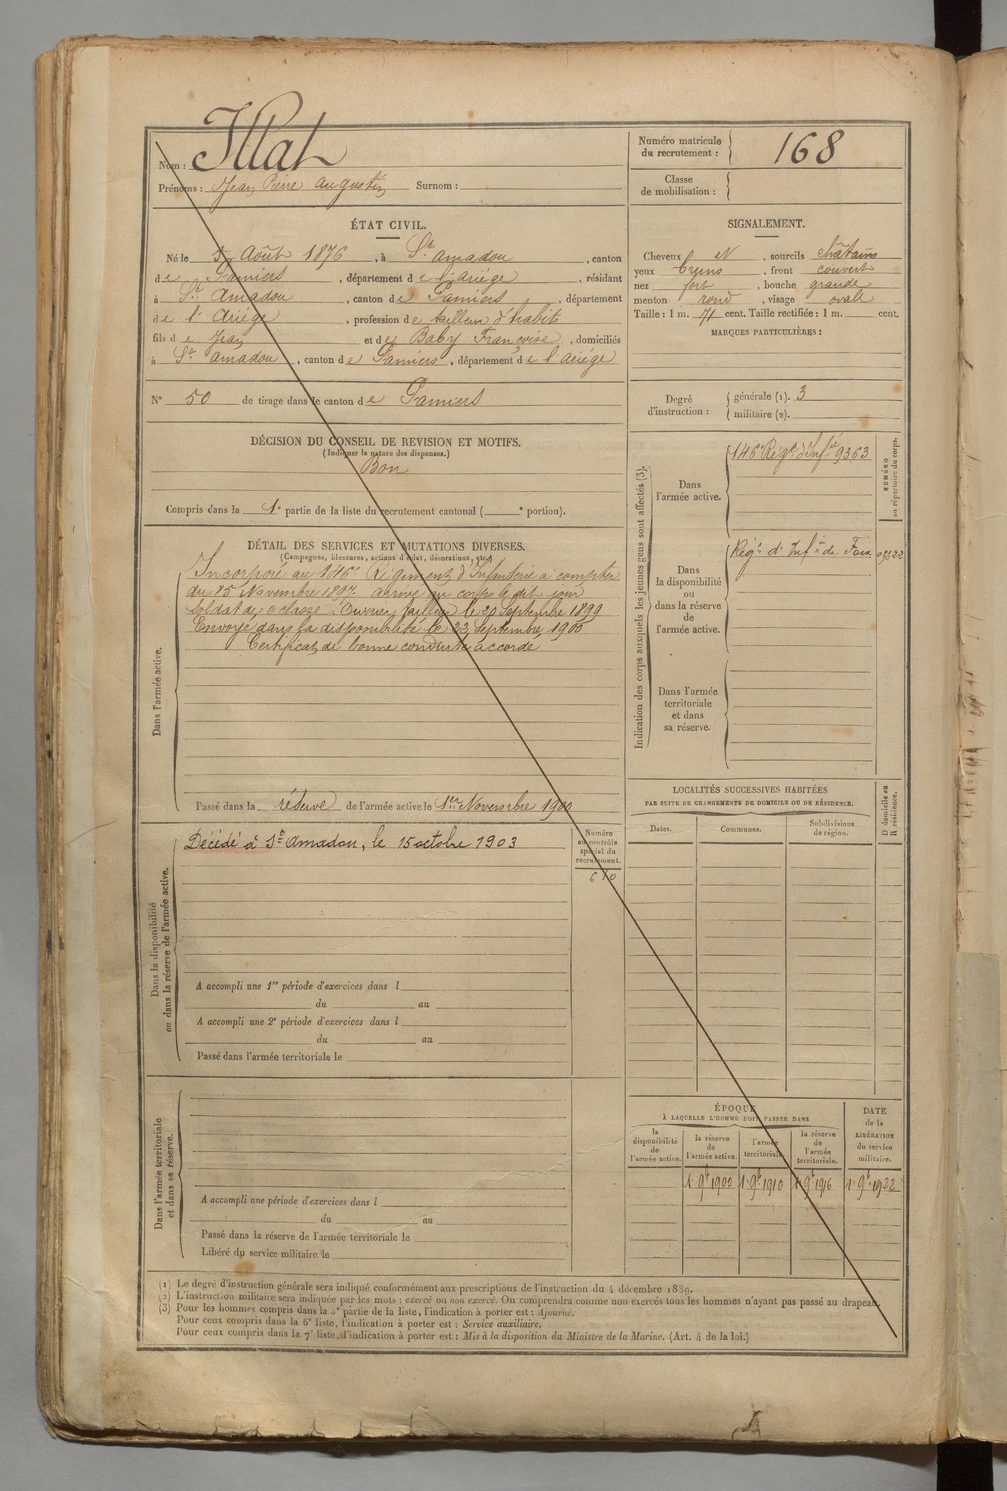 Nom : Illat
Prénoms : Jean Pierre Augustin Surnom :
Numéro matricule du recrutement : 168
Classe de mobilisation :
ÉTAT CIVIL.
Né le Août 1876, à St Amadou, canton
de Pamiers, département de l'Ariége, résidant
à St Amadou, canton de Pamiers, département
de l'Ariége, profession de tailleur d'habits
fils de Jean et de Baby Françoise, domiciliés
à St Amadou, canton de Pamiers, département de l'Ariége
N° 50 de tirage dans le canton de Pamiers
DÉCISION DU CONSEIL DE REVISION ET MOTIFS.
(Indiquer la nature des dispenses.)
Bon
Compris dans la 1e partie de la liste du recrutement cantonal ( e portion).
SIGNALEMENT.
Cheveux N, sourcils châtains
yeux bruns, front couvert
nez fort, bouche grande
menton rond, visage ovale
Taille : 1 m. 71 cent. Taille rectifiée : 1 m. cent.
MARQUES PARTICULIÈRES :
Degré d'instruction : générale (1). 3
militaire (2).
DÉTAIL DES SERVICES ET MUTATIONS DIVERSES.
(Campagnes, blessures, actions d'éclat, décorations, etc.)
Dans l'armée active.
Incorporé au 146e Régiment d'Infanterie a compter
du 15 Novembre 1897 arrivé au corps le dit jour
soldat de 2e classe. Ouvrier tailleur le 20 Septembre 1899
Envoyé dans la disponibilité le 22 Septembre 1900
Certificat de bonne conduite accordé
Passé dans la réserve de l'armée active le 1er Novembre 1900
Indication des corps auxquels les jeunes gens sont affectés (3).
NUMÉRO au répertoire du corps.
Dans l'armée active.
146e Régt d'Infie 9363
Dans la disponibilité ou dans la réserve de l'armée active.
Régt d'Infie de Foix
Dans l'armée territoriale et dans sa réserve.
Dans la disponibilité ou dans la réserve de l'armée active.
Décédé à St Amadou, le 15 octobre 1903
Numéro au contrôle spécial du recrutement.
A accompli une 1re période d'exercices dans l
du au
A accompli une 2e période d'exercices dans l
du au
Passé dans l'armée territoriale le
LOCALITÉS SUCCESSIVES HABITÉES
PAR SUITE DE CHANGEMENTS DE DOMICILE OU DE RÉSIDENCE.
Dates. Communes. Subdivisions de région. D domicile ou R résidence.
Dans l'armée territoriale et dans sa réserve.
A accompli une période d'exercices dans l
du au
Passé dans la réserve de l'armée territoriale le
Libéré du service militaire le
ÉPOQUE
À LAQUELLE L'HOMME DOIT PASSER DANS
la disponibilité de l'armée active.
la réserve de l'armée active.
l'armée territoriale.
la réserve de l'armée territoriale.
DATE de la LIBÉRATION du service militaire.
1r 9bre 1900 1r 9bre 1910 1r 9bre 1916 1r 9bre 1922
(1) Le degré d'instruction générale sera indiqué conformément aux prescriptions de l'instruction du 4 décembre 1889.
(2) L'instruction militaire sera indiquée par les mots : exercé ou non exercé. On comprendra comme non exercés tous les hommes n'ayant pas passé au drapeau.
(3) Pour les hommes compris dans la 5e partie de la liste, l'indication à porter est : Ajourné.
Pour ceux compris dans la 6e liste, l'indication à porter est : Service auxiliaire.
Pour ceux compris dans la 7e liste, l'indication à porter est : Mis à la disposition du Ministre de la Marine. (Art. 4 de la loi.)